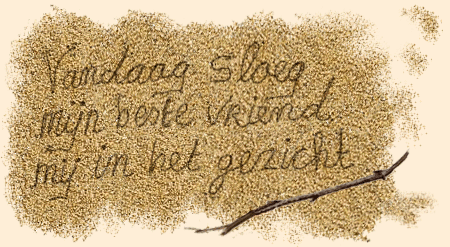 Vandaag sloeg
mijn beste vriend
mij in het gezicht